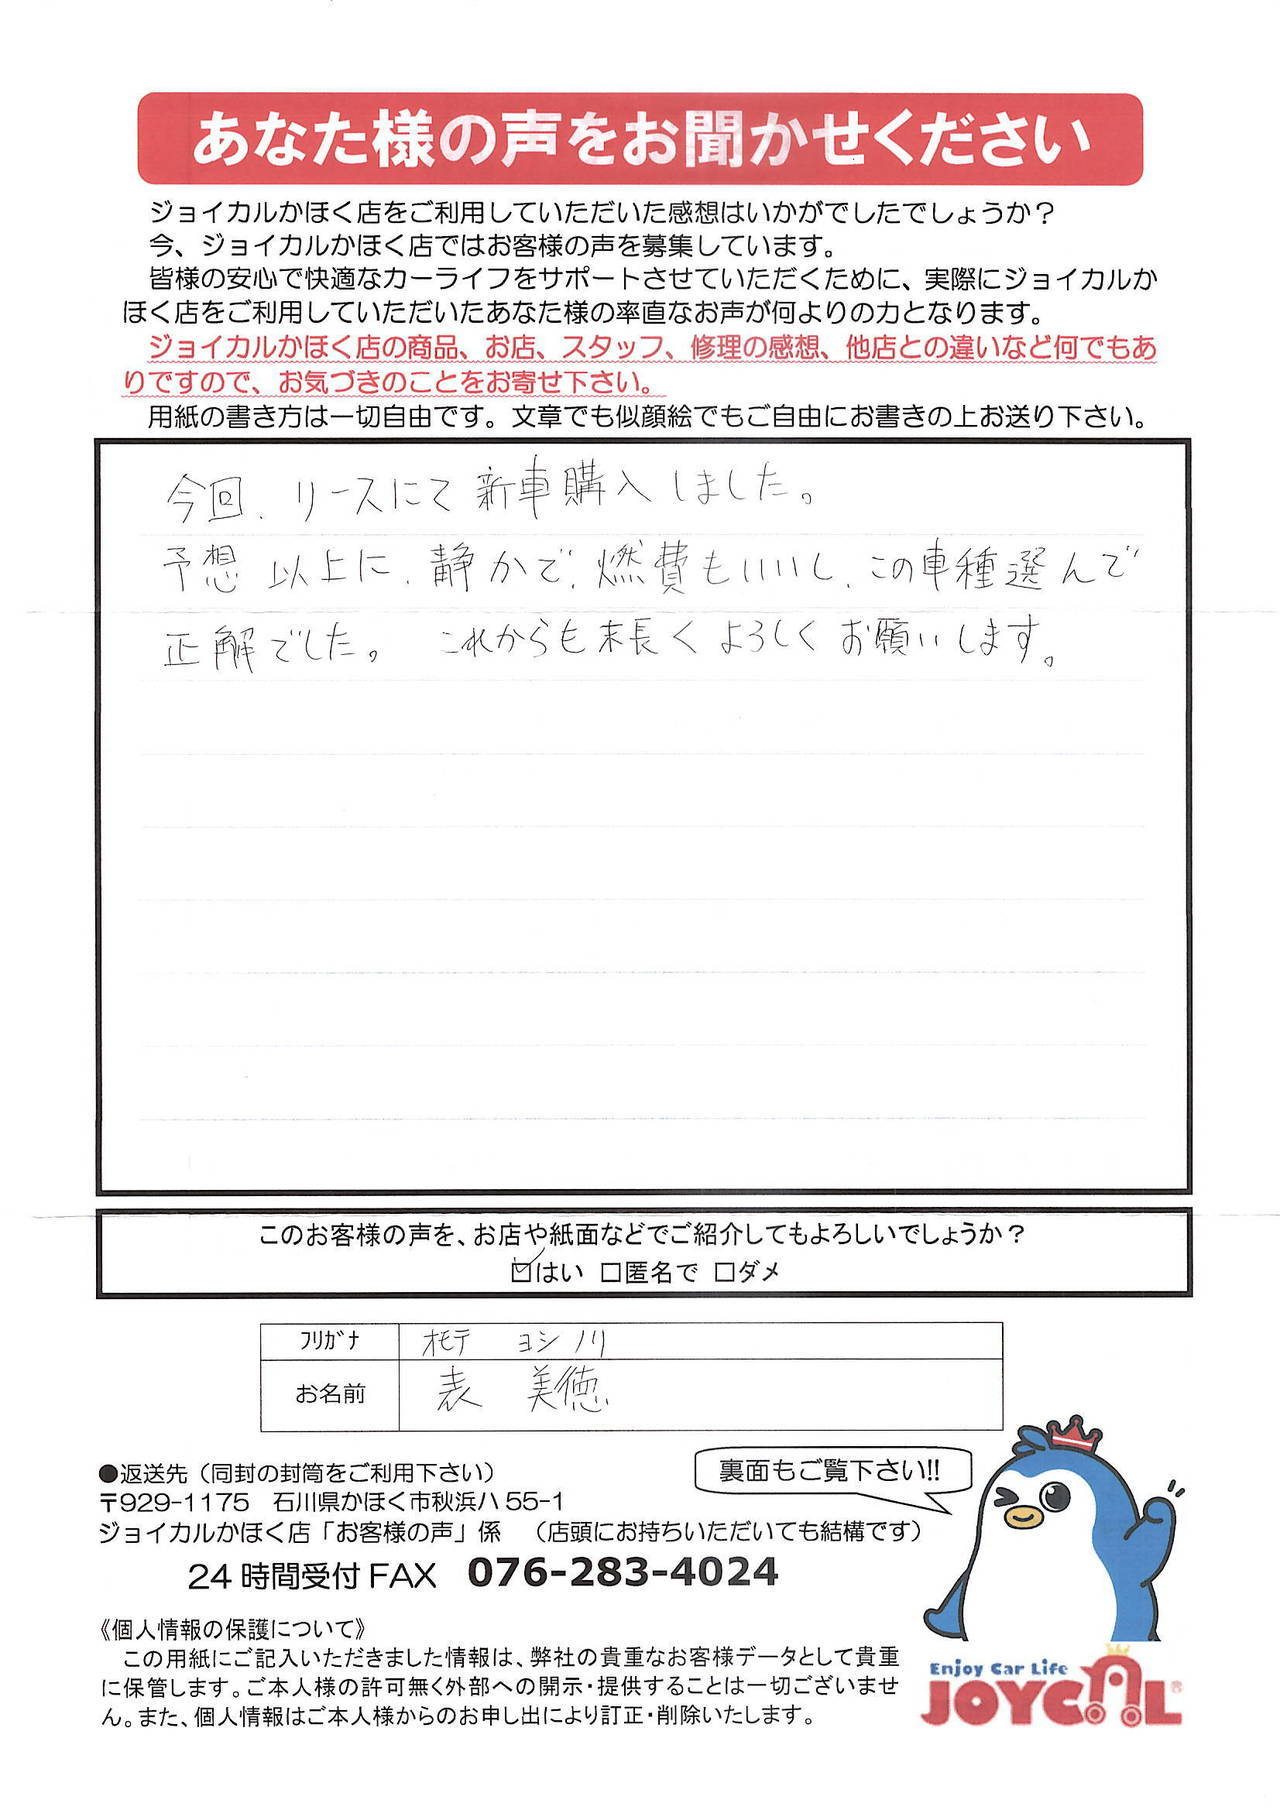 あなた様の声をお聞かせください
ジョイカルかほく店をご利用していただいた感想はいかがでしたでしょうか？
今、ジョイカルかほく店ではお客様の声を募集しています。
皆様の安心で快適なカーライフをサポートさせていただくために、実際にジョイカルか
ほく店をご利用していただいたあなた様の率直なお声が何よりの力となります。
ジョイカルかほく店の商品、お店、スタッフ、修理の感想、他店との違いなど何でもあ
りですので、お気づきのことをお寄せ下さい。
用紙の書き方は一切自由です。文章でも似顔絵でもご自由にお書きの上お送り下さい。
今回、リースにて新車購入しました。
予想以上に、静かで、燃費もいいし、この車種選んで
正解でした。 これからも末長くよろしくお願いします。
このお客様の声を、お店や紙面などでご紹介してもよろしいでしょうか？
☑はい □匿名で □ダメ
ﾌﾘｶﾞﾅ オモテ ヨシノリ
お名前 表 美徳
裏面もご覧下さい!!
●返送先（同封の封筒をご利用下さい）
〒929-1175 石川県かほく市秋浜ハ55-1
ジョイカルかほく店「お客様の声」係 （店頭にお持ちいただいても結構です）
24時間受付FAX 076-283-4024
《個人情報の保護について》
この用紙にご記入いただきました情報は、弊社の貴重なお客様データとして貴重
に保管します。ご本人様の許可無く外部への開示・提供することは一切ございませ
ん。また、個人情報はご本人様からのお申し出により訂正・削除いたします。
Enjoy Car Life
JOYCAL